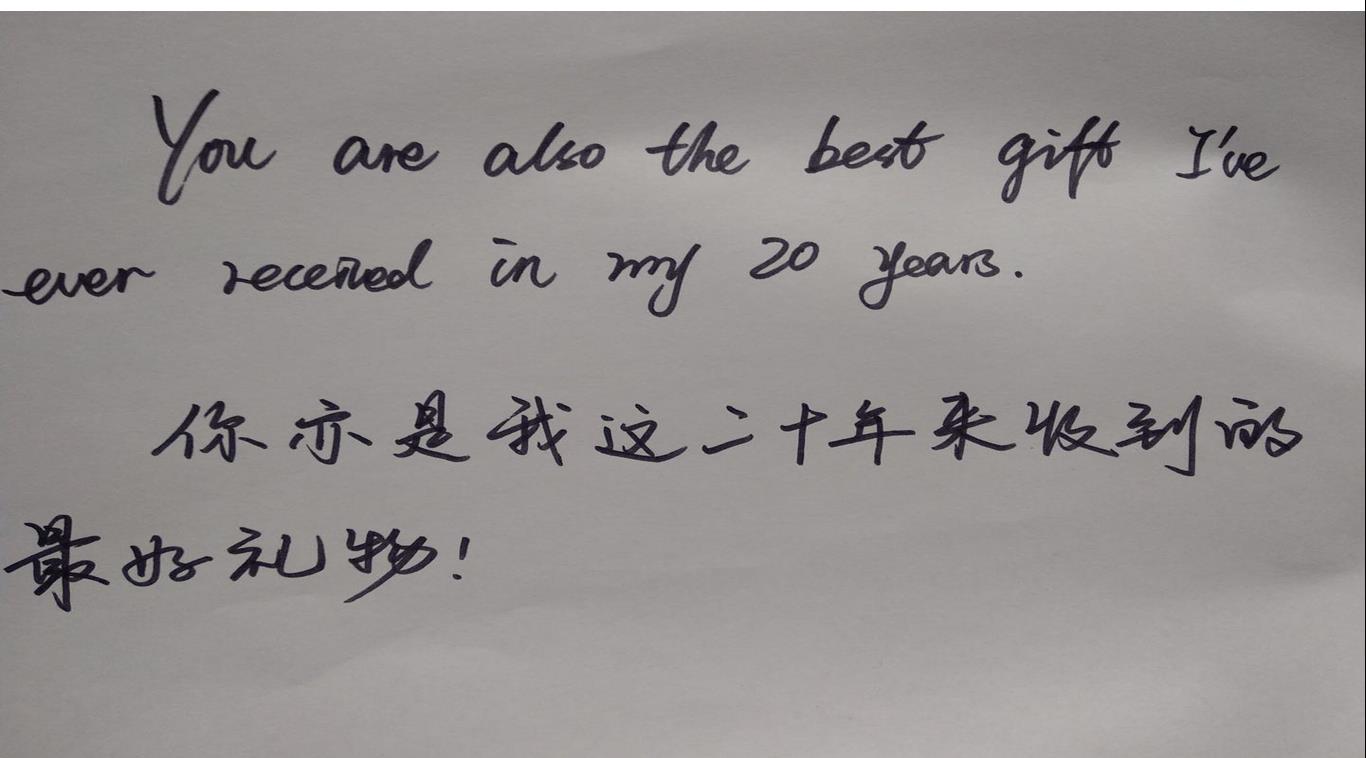 You are also the best gift I've
ever received in my 20 years.
你亦是我这二十年来收到的
最好礼物!